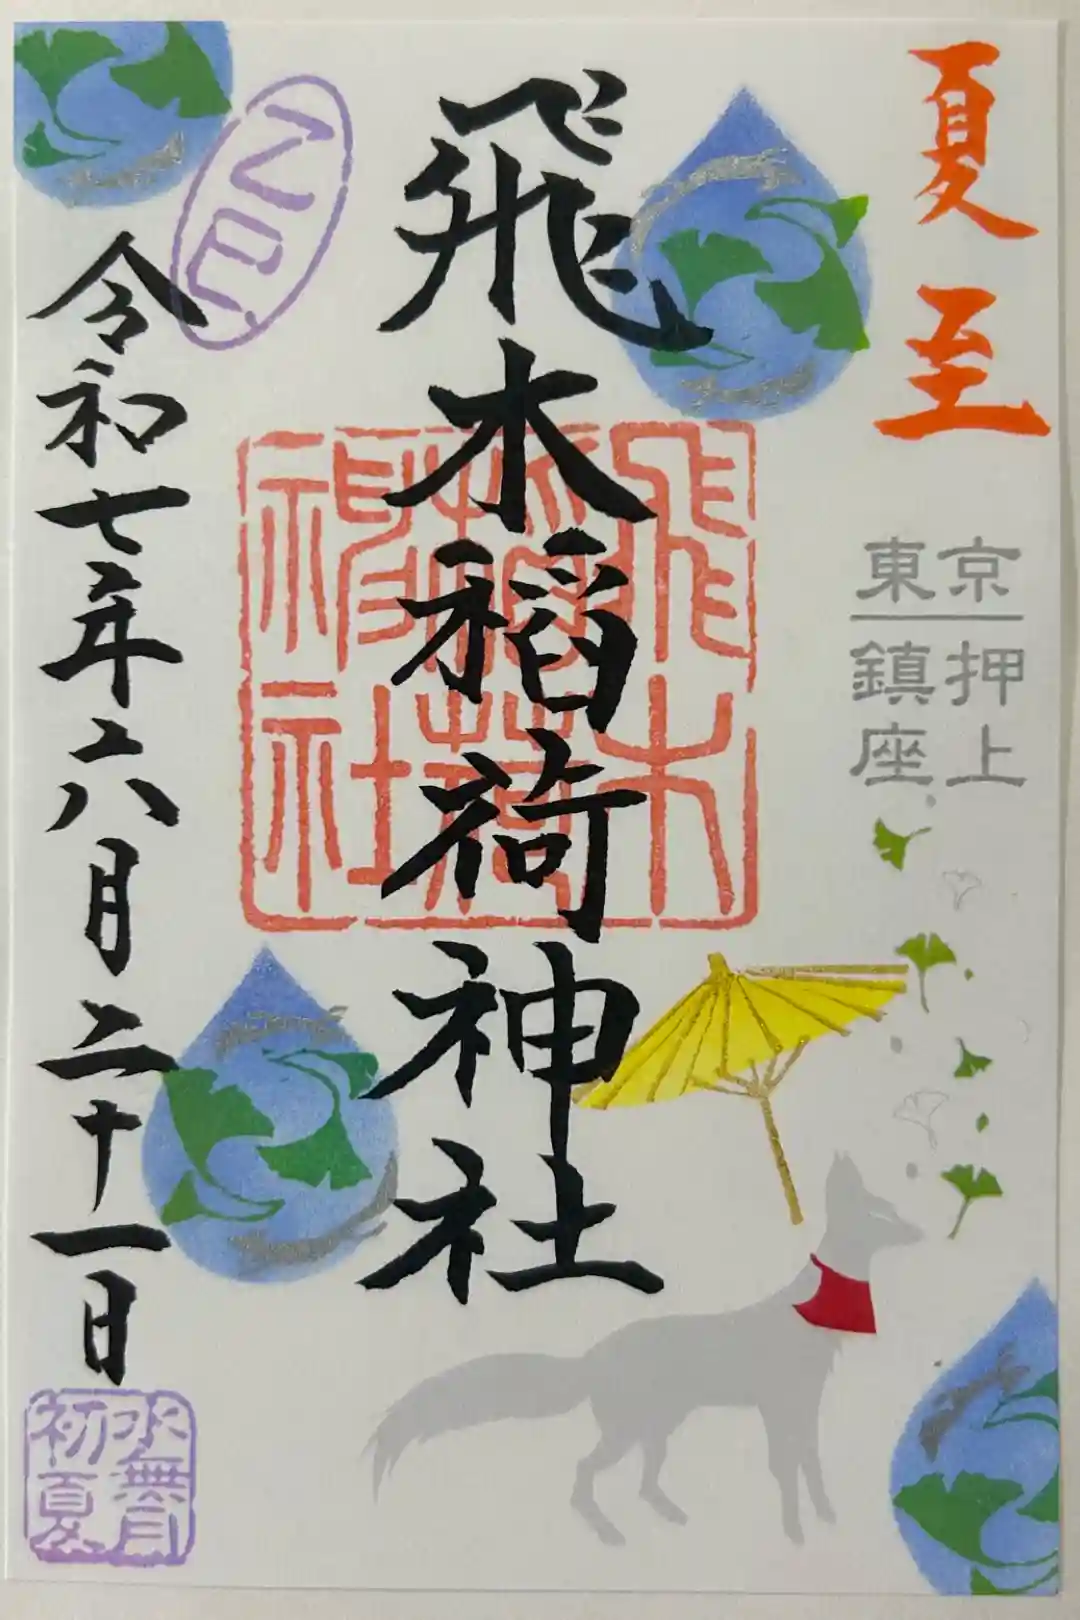 夏至
京押上
東鎮座
飛木稲荷神社
飛木
稲荷
神社
乙巳
令和七年六月二十一日
水無月
初夏